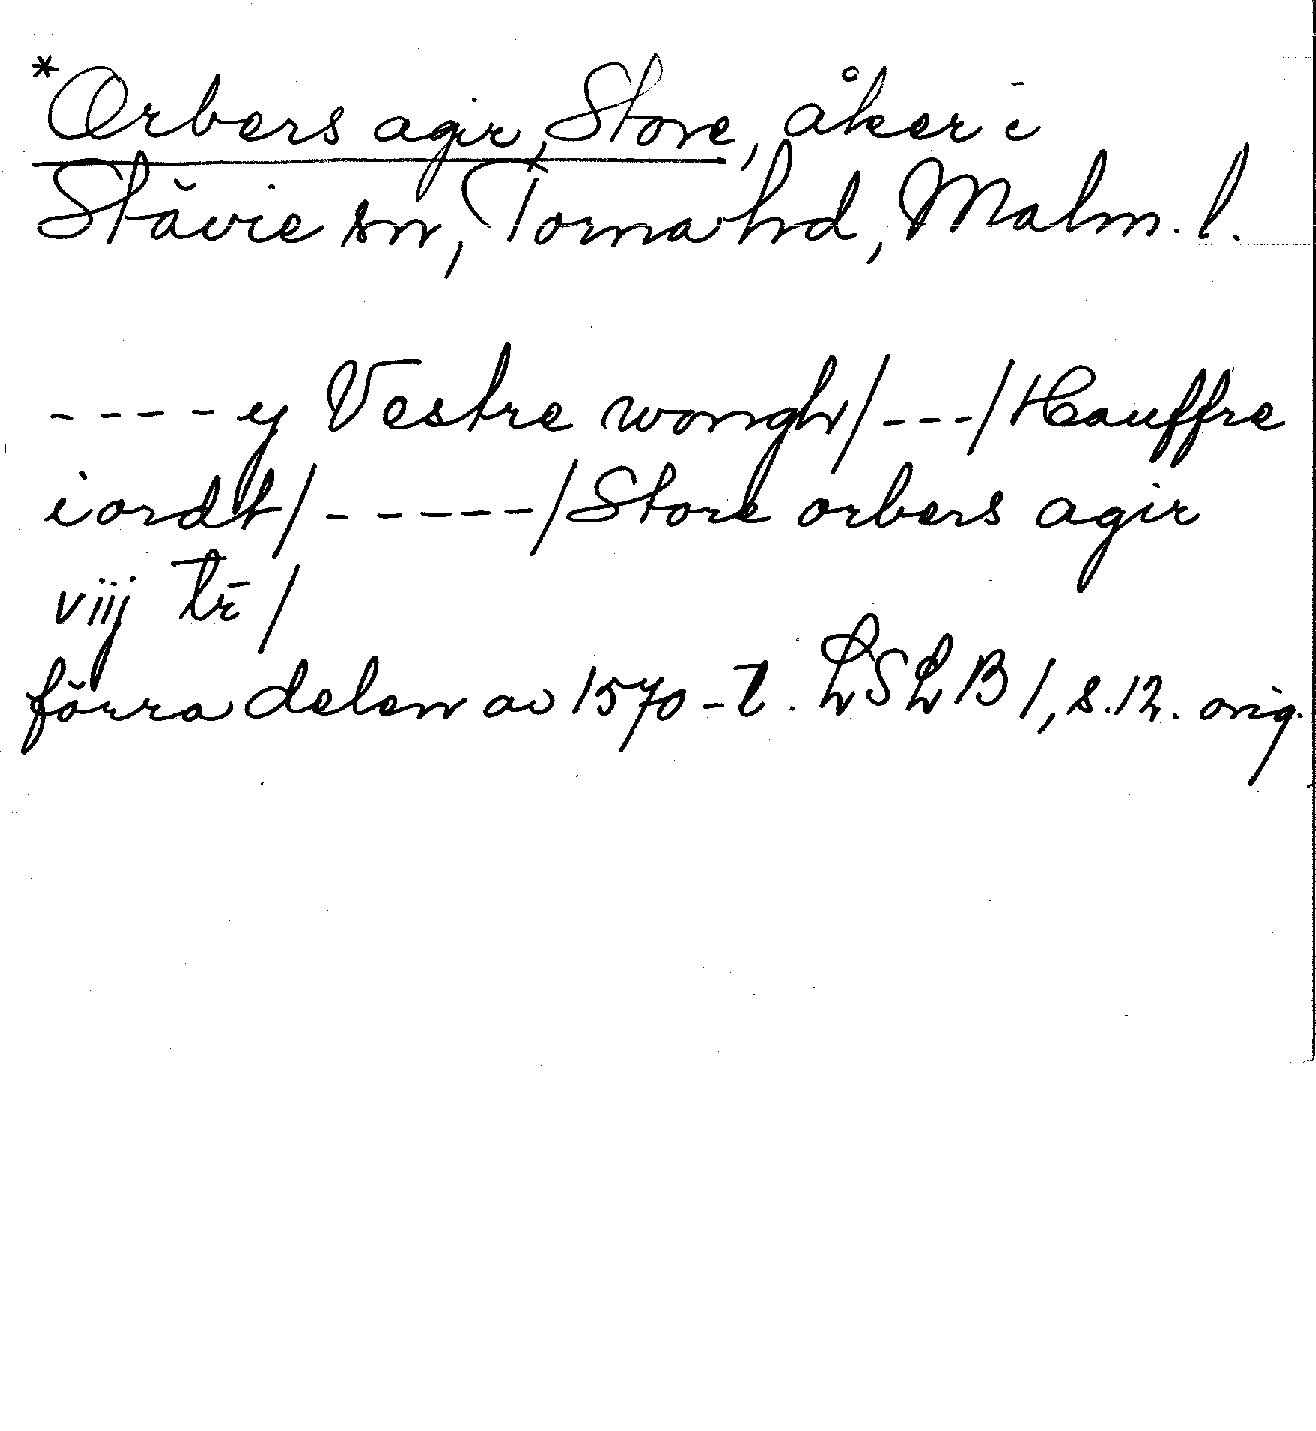 *Orbers agir, Store, åker i
Stävie sn, Torna hd, Malm. l.
----y Vestre wongh/---/Hauffre
iordt/-----/Store orbers agir
viij tr̄/
förra delen av 1570-t. LSLB 1, s.12. orig.